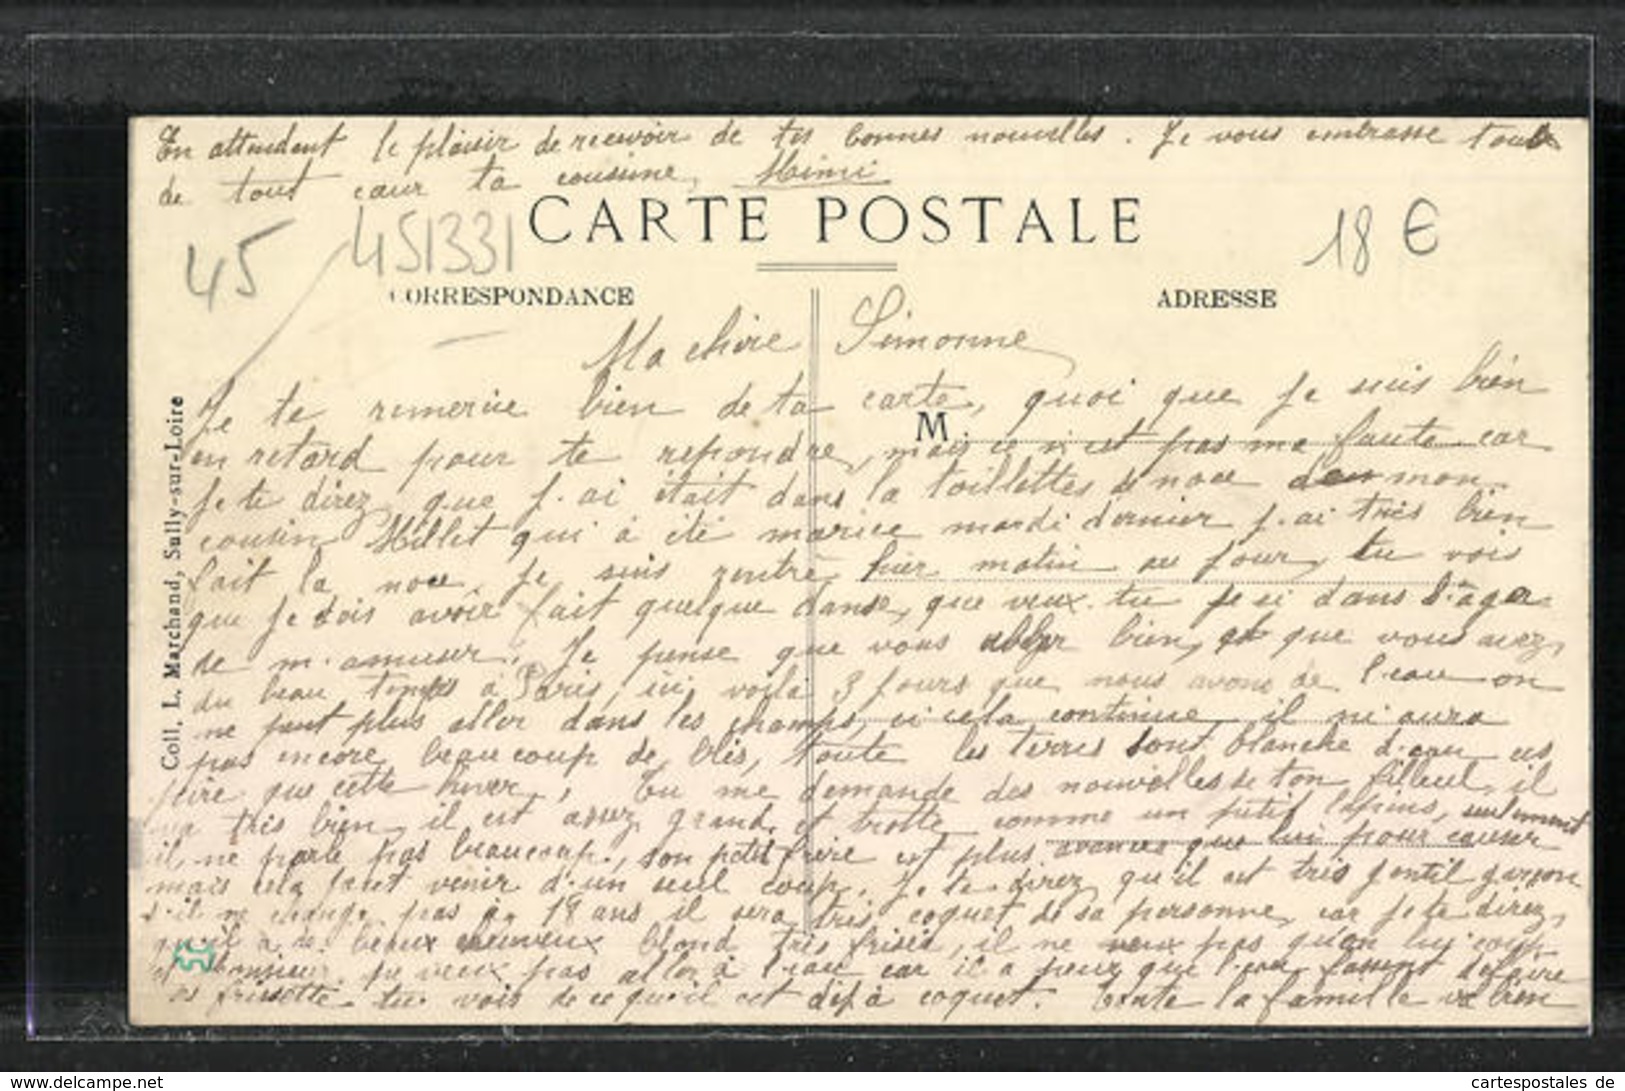 En attendent le plaisir de recevoir de tes bonnes nouvelles. Je vous embrasse tous
de tout cœur ta cousine, Mimi
CARTE POSTALE
45
451331
18 €
CORRESPONDANCE
ADRESSE
Coll. L. Marchand, Sully-sur-Loire
M.
Ma chère Simonne
Je te remercie bien de ta carte, quoi que je suis bien
en retard pour te repondre, mais ce n'est pas ma faute car
je te direz que j'ai était dans la toillettes de noce de mon
cousin Millet qui à été mariée mardi dernier j'ai très bien
fait la noce, je suis rentrè hier matin au jour, tu vois
que je dois avoir fait quelque danse, que veux-tu je ai dans l'age
de m'amuser. Je pense que vous aller bien, et que vous avez
du beau temps à Paris, ici voila 3 jours que nous avons de l'eau on
ne peut plus aller dans les champs, si cela continue il ni aura
pas encore beaucoup de blés, toute les terres sont blanche d'eau ces
pire que cette hiver, Tu me demande des nouvelles de ton filleul, il
va très bien, il est assez grand et trotte comme un petit lapins, seulement
il ne parle pas beaucoup, son petit frère est plus avancé que lui pour causer
mais cela peut venir d'un seul coup. Je te direz qu'il est très gentil garçon
s'il ne change pas à 18 ans il sera très coquet de sa personne, car je te direz
qu'il a de beaux cheveux blond très frisés, il ne veux pas qu'on lui coup
et monsieur ne veux pas aller à l'eau car il a peur que l'eau fassent défaire
ses frisotte. tu vois de ce qu'il est déjà coquet. Toute la famille va bien
www.delcampe.net
cartespostales de